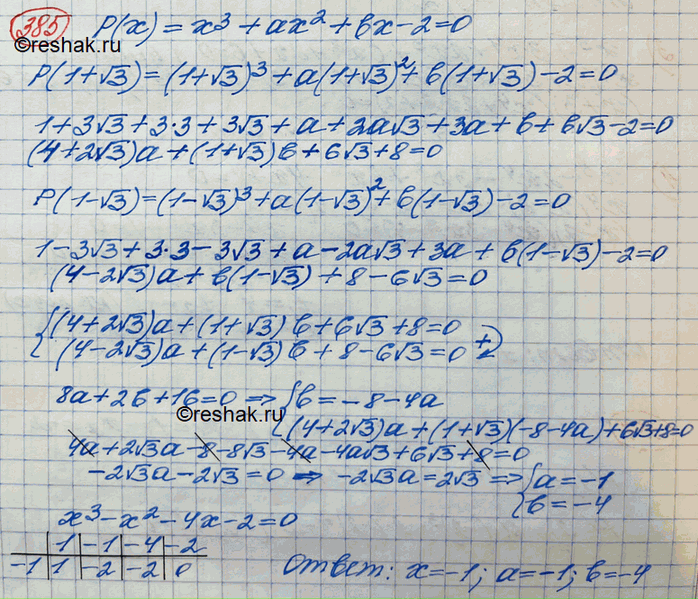 385 P(x) = x³ + ax² + bx - 2 = 0
©reshak.ru
P(1+√3) = (1+√3)³ + a(1+√3)² + b(1+√3) - 2 = 0
1 + 3√3 + 3·3 + 3√3 + a + 2a√3 + 3a + b + b√3 - 2 = 0
(4+2√3)a + (1+√3)b + 6√3 + 8 = 0
P(1-√3) = (1-√3)³ + a(1-√3)² + b(1-√3) - 2 = 0
1 - 3√3 + 3·3 - 3√3 + a - 2a√3 + 3a + b(1-√3) - 2 = 0
(4-2√3)a + b(1-√3) + 8 - 6√3 = 0
{(4+2√3)a + (1+√3)b + 6√3 + 8 = 0
(4-2√3)a + (1-√3)b + 8 - 6√3 = 0 +
8a + 2b + 16 = 0 ⇒ {b = -8 - 4a
©reshak.ru
(4+2√3)a + (1+√3)(-8-4a) + 6√3 + 8 = 0
4a + 2√3a - 8 - 8√3 - 4a - 4a√3 + 6√3 + 8 = 0
-2√3a - 2√3 = 0 ⇒ -2√3a = 2√3 ⇒ {a = -1
b = -4
x³ - x² - 4x - 2 = 0
1 | -1 | -4 | -2
-1 | 1 | -2 | -2 | 0
Ответ: x = -1; a = -1; b = -4